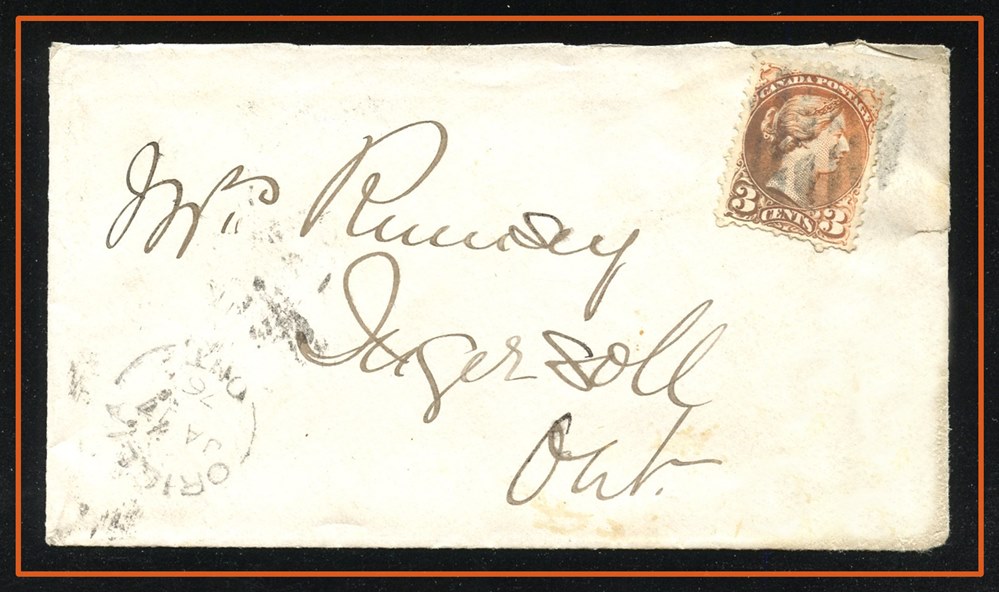 CANADA POSTAGE
3 CENTS 3
Mrs Rumsey
Ingersoll
Ont.
ONT
76
JA